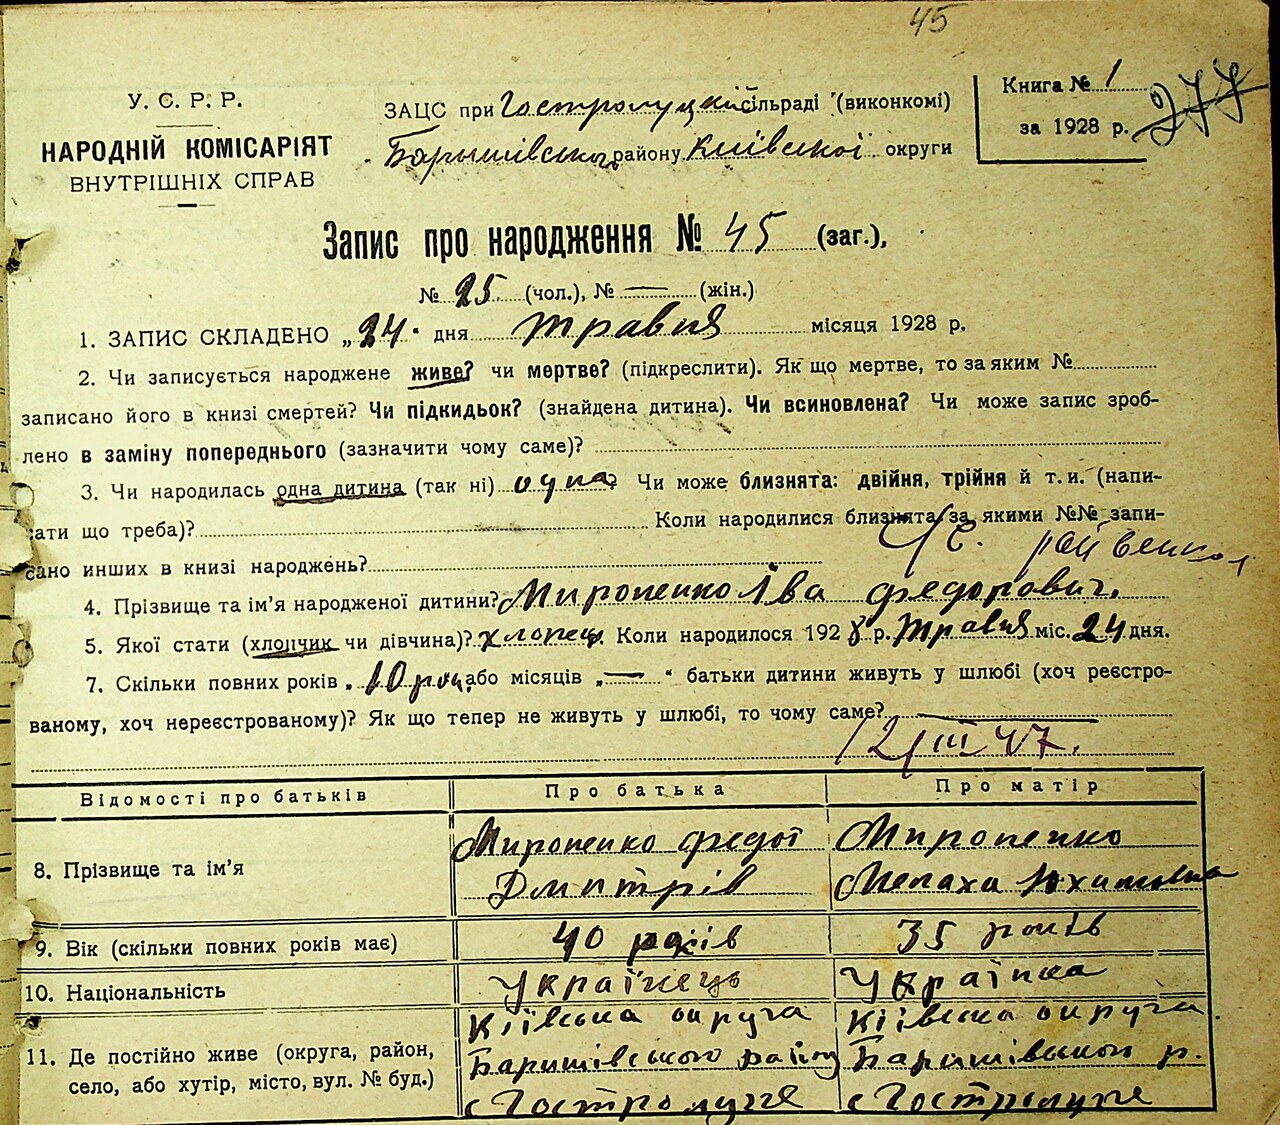 45
У. С. Р. Р.
НАРОДНІЙ КОМІСАРІЯТ
ВНУТРІШНІХ СПРАВ
ЗАЦС при Гостролуцкій сільраді (виконкомі)
Баришівського району Київської округи
Книга № 1
за 1928 р. 277
Запис про народження № 45 (заг.),
№ 25 (чол.), № — (жін.)
1. ЗАПИС СКЛАДЕНО „24" дня травня місяця 1928 р.
2. Чи записується народжене живе? чи мертве? (підкреслити). Як що мертве, то за яким №
записано його в книзі смертей? Чи підкидьок? (знайдена дитина). Чи всиновлена? Чи може запис зроб-
лено в заміну попереднього (зазначити чому саме)?
3. Чи народилась одна дитина (так ні) одна? Чи може близнята: двійня, трійня й т. и. (напи-
сати що треба)? Коли народилися близнята за якими №№ запи-
сано инших в книзі народжень?
4. Прізвище та ім'я народженої дитини? Мироненко Іва Федорович.
5. Якої стати (хлопчик чи дівчина)? хлопець. Коли народилося 1928 р. Травня міс. 24 дня.
7. Скільки повних років „10 рок. або місяців „—" батьки дитини живуть у шлюбі (хоч реєстро-
ваному, хоч нереєстрованому)? Як що тепер не живуть у шлюбі, то чому саме?
12/III 47.
Відомості про батьків Про батька Про матір
8. Прізвище та ім'я
Мироненко Федот
Дмитрів
Мироненко
Мелаха Юхимовна
9. Вік (скільки повних років має) 40 років 35 років
10. Національність Українець Українка
11. Де постійно живе (округа, район,
село, або хутір, місто, вул. № буд.)
Київська округа
Баришівського району
с Гостролуччя
Київска округа
Баришівського р.
с Гостролучче